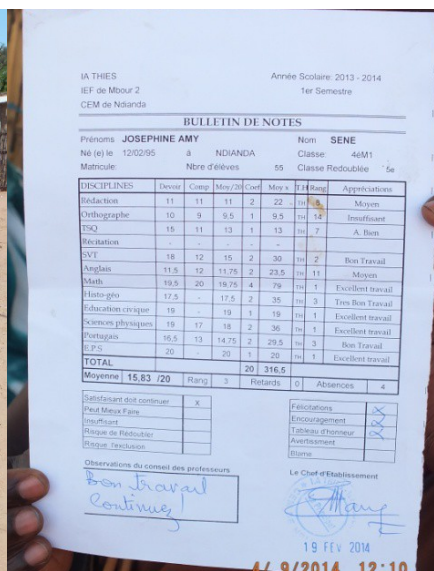 IA THIES Année Scolaire: 2013 - 2014
IEF de Mbour 2 1er Semestre
CEM de Ndianda
BULLETIN DE NOTES
Prénoms JOSEPHINE AMY Nom SENE
Né (e) le 12/02/95 a NDIANDA Classe 4éM1
Matricule: Nbre d'élèves 55 Classe Redoublée 5e
DISCIPLINES Devoir Comp Moy/20 Coef Moy x T.H Rang Appréciations
Rédaction 11 11 11 2 22 TH 5 Moyen
Orthographe 10 9 9,5 1 9,5 TH 14 Insuffisant
TSQ 15 11 13 1 13 TH 7 A. Bien
Récitation - - - - TH
SVT 18 12 15 2 30 TH 2 Bon Travail
Anglais 11,5 12 11,75 2 23,5 TH 11 Moyen
Math 19,5 20 19,75 4 79 TH 1 Excellent travail
Histo-géo 17,5 - 17,5 2 35 TH 3 Tres Bon Travail
Education civique 19 - 19 1 19 TH 1 Excellent travail
Sciences physiques 19 17 18 2 36 TH 1 Excellent travail
Portugais 16,5 13 14,75 2 29,5 TH 3 Bon Travail
E.P.S 20 - 20 1 20 TH 1 Excellent travail
TOTAL 20 316,5
Moyenne 15,83 /20 Rang 3 Retards 0 Absences 4
Satisfaisant doit continuer x
Peut Mieux Faire
Insuffisant
Risque de Redoubler
Risque l'exclusion
Félicitations X
Encouragement X
Tableau d'honneur X
Avertissment
Blame
Observations du conseil des professeurs
Bon travail
Continuez
Le Chef d'Etablissement
19 FEV 2014
9/2014 12:10